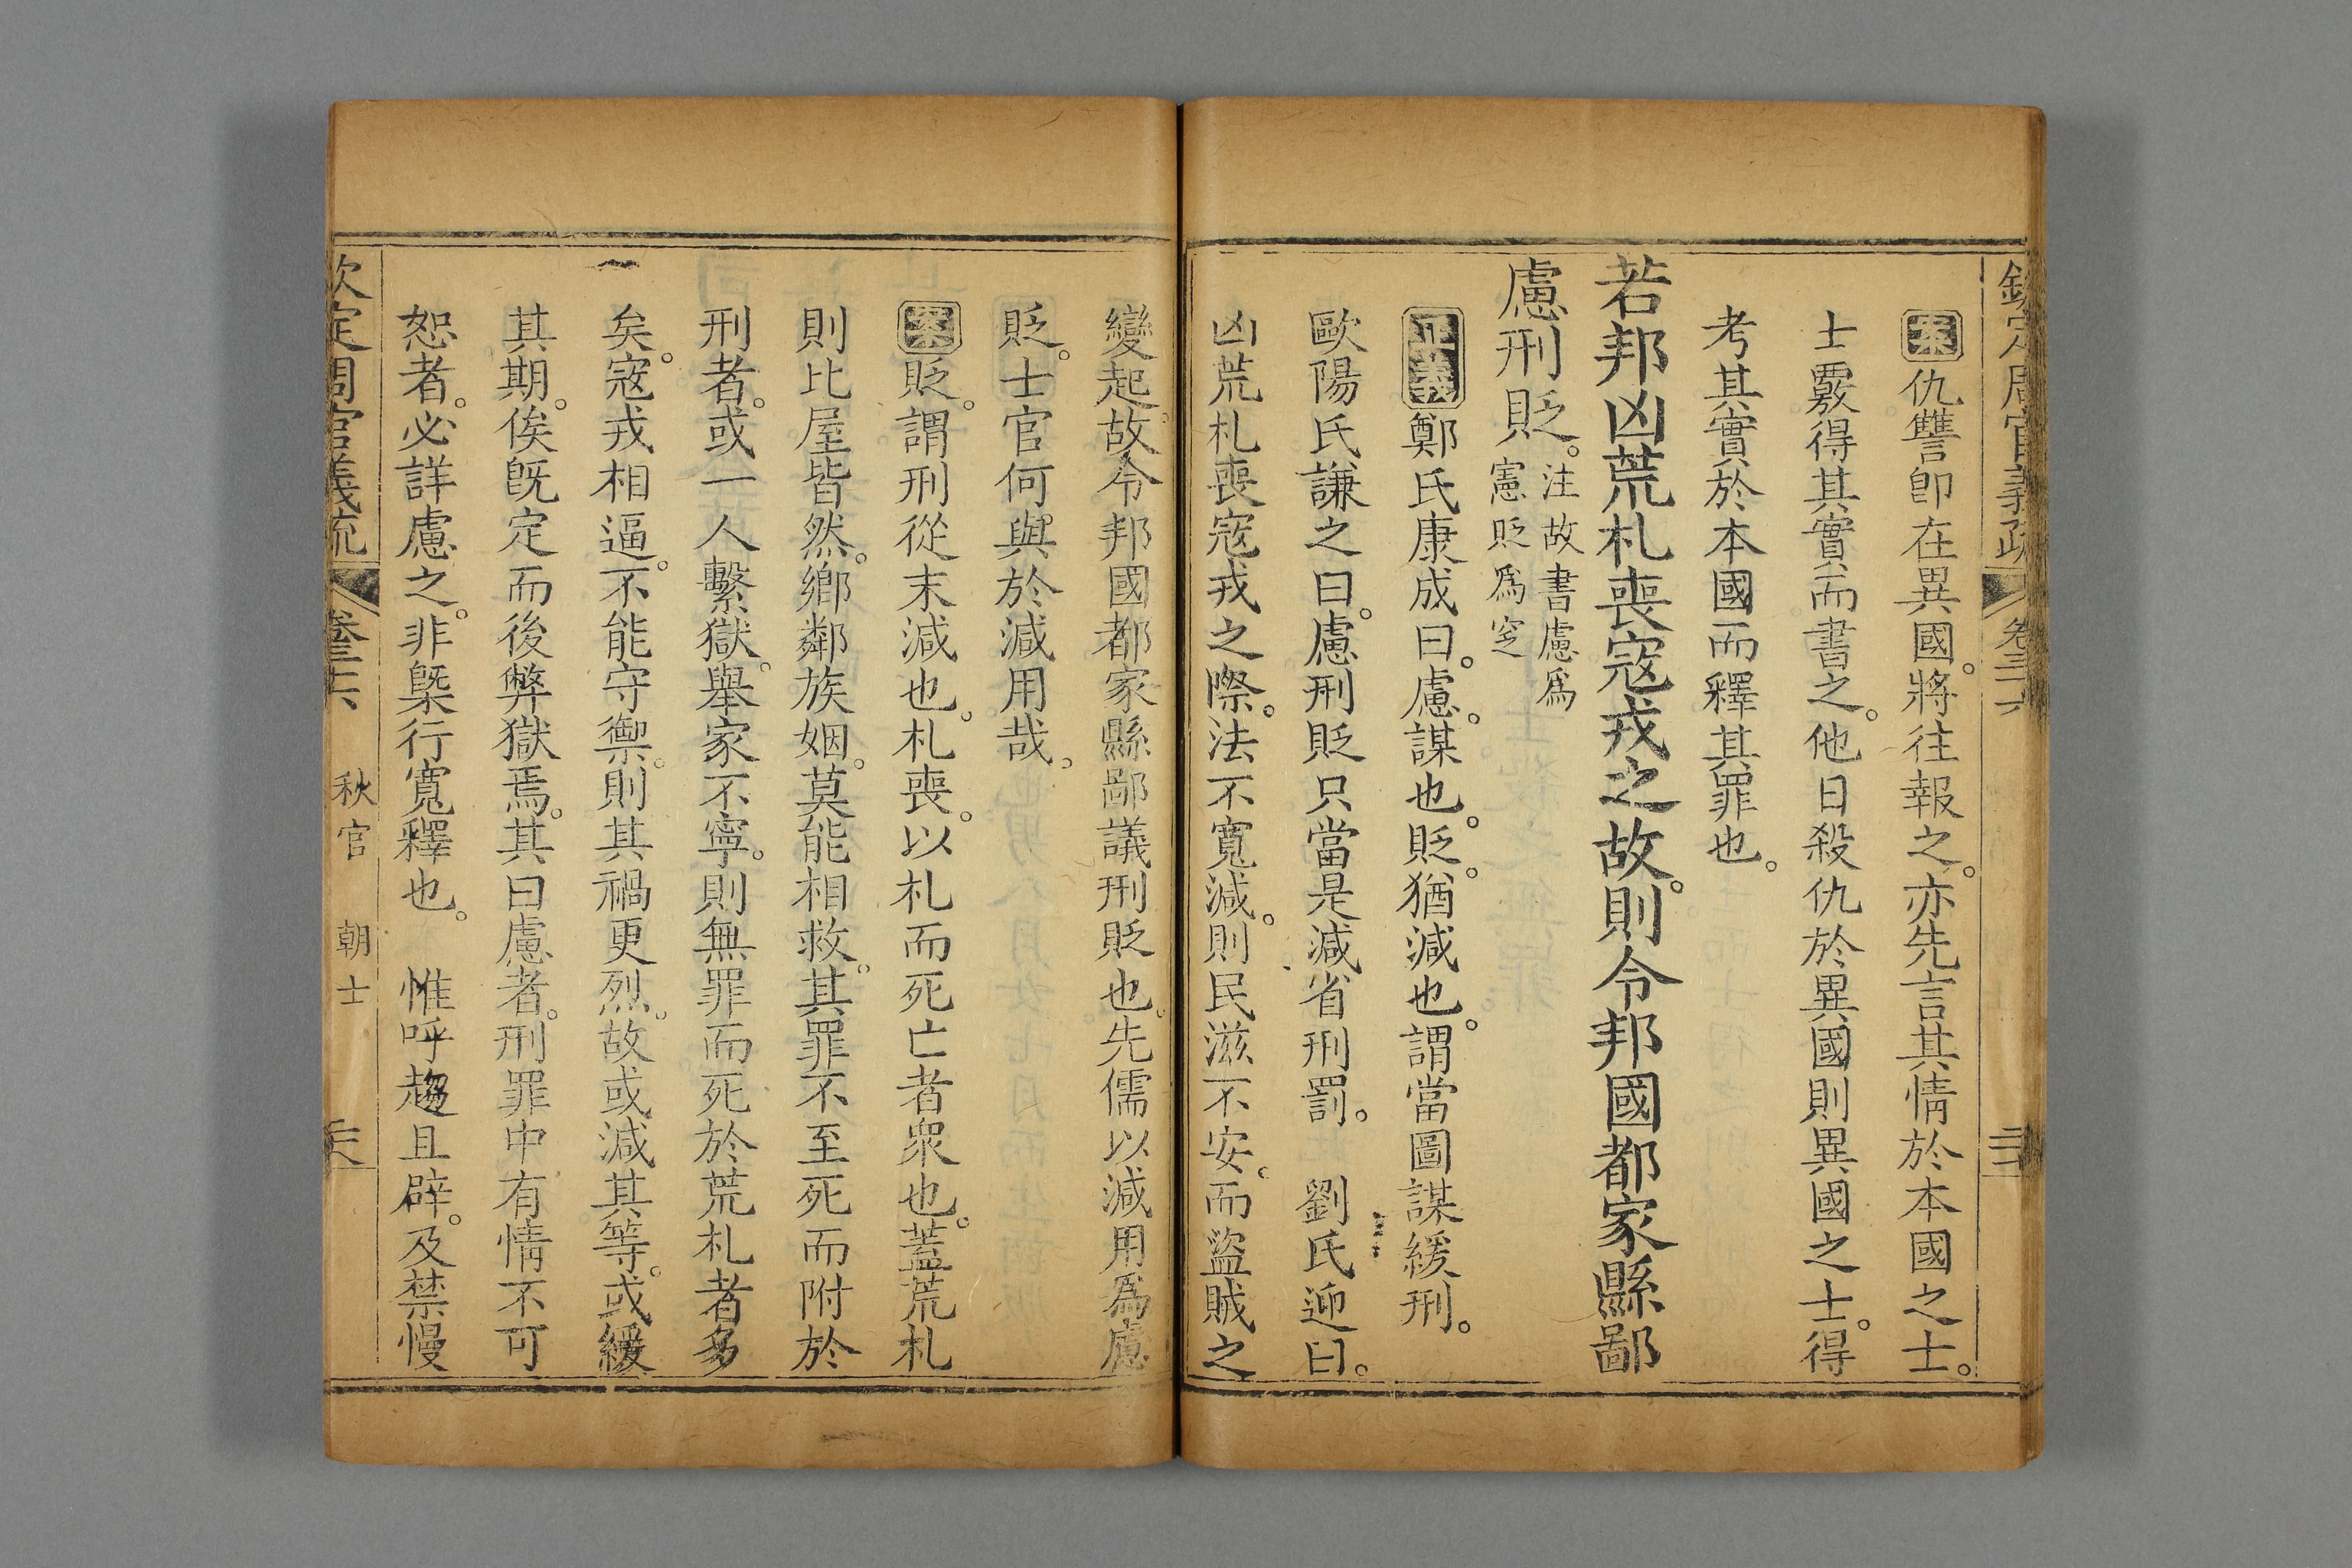 欽定周官義疏 卷三十六
案仇讐卽在異國。將往報之。亦先言其情於本國之士。
士覈得其實而書之。他日殺仇於異國則異國之士。得
考其實於本國而釋其罪也。
若邦凶荒札喪寇戎之故。則令邦國都家縣鄙
慮刑貶。注故書慮爲
憲貶爲窆
正義鄭氏康成曰。慮。謀也。貶。猶減也。謂當圖謀緩刑。
歐陽氏謙之曰。慮刑貶只當是減省刑罰。 劉氏迎曰。
凶荒札喪寇戎之際。法不寬減。則民滋不安。而盜賊之
變起。故令邦國都家縣鄙議刑貶也。先儒以減用爲慮
貶。士官何與於減用哉。
案貶。謂刑從末減也。札喪。以札而死亡者衆也。蓋荒札
則比屋皆然。鄉鄰族姻。莫能相救。其罪不至死而附於
刑者。或一人繫獄。舉家不寧。則無罪而死於荒札者多
矣。寇戎相逼。不能守禦。則其禍更烈。故或減其等。或緩
其期。俟旣定而後弊獄焉。其曰慮者。刑罪中有情不可
恕者。必詳慮之。非槩行寬釋也。 惟呼趨且辟。及禁慢
欽定周官義疏 卷三十六 秋官 朝士